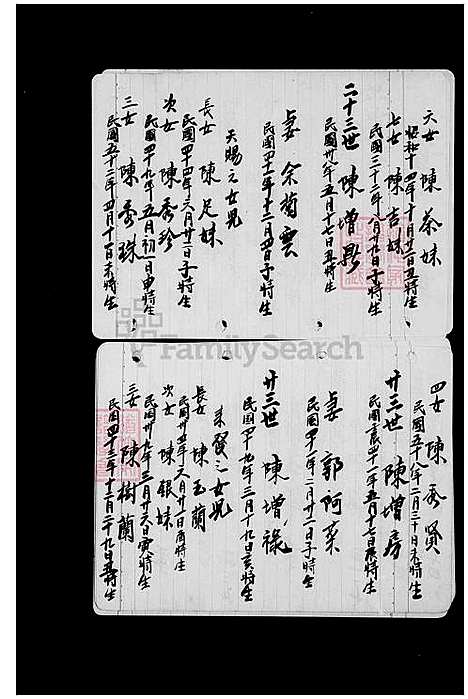 六女 陳茶妹
昭和十四年十月廿一日丑時生
七女 陳吉妹
民國三十二年八月廿九日子時生
二十三世 陳增
民國廿八年五月十七日丑時生
妻 余蘭雲
民國四十一年十二月四日子時生
天賜之女兒
長女 陳足妹
民國四十四年六月廿二日子時生
次女 陳秀珍
民國四十九年五月初一日申時生
三女 陳秀珠
民國五十二年四月十一日未時生
FamilySearch
四女 陳秀賢
民國五十八年二月三十日未時生
廿三世 陳增房
民國四十一年五月十七日辰時生
妻 郭阿菜
民國四十一年二月廿二日子時生
廿三世 陳增祿
民國四十九年三月十九日亥時生
來發之女兒
長女 陳玉蘭
民國廿五年六月廿一日酉時生
次女 陳銀妹
民國廿九年三月廿六日寅時生
三女 陳樹蘭
民國四十三年十二月二十九日丑時生